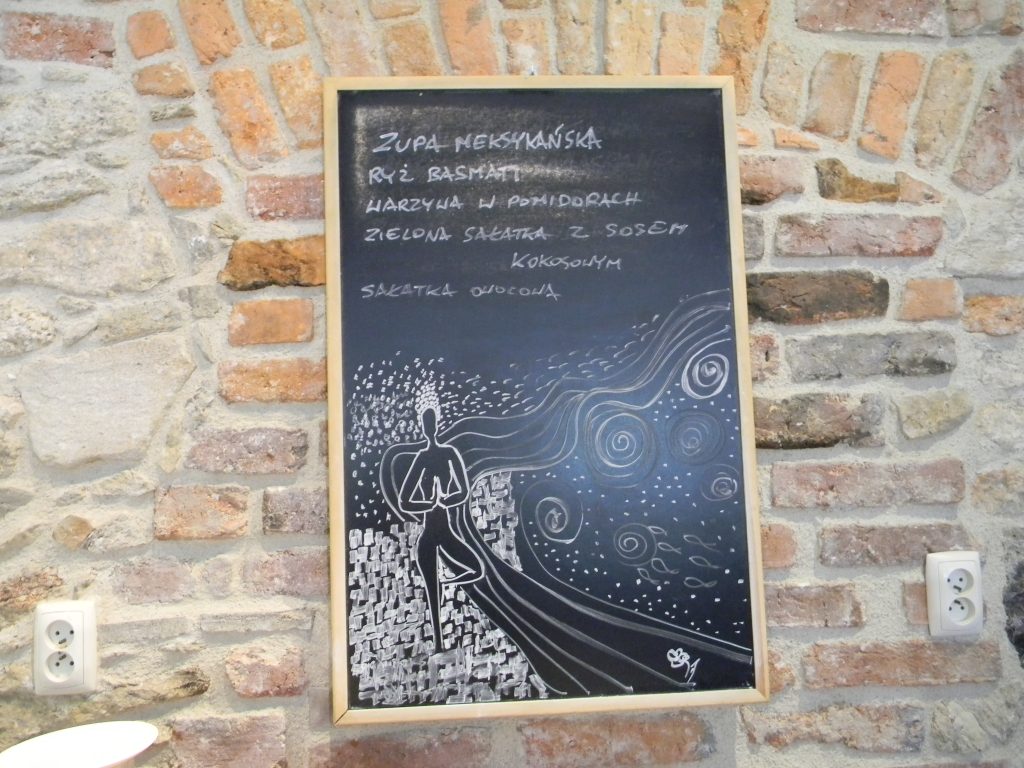 ZUPA MEKSYKAŃSKA
RYŻ BASMATI
WARZYWA W POMIDORACH
ZIELONA SAŁATKA Z SOSEM
KOKOSOWYM
SAŁATKA OWOCOWA